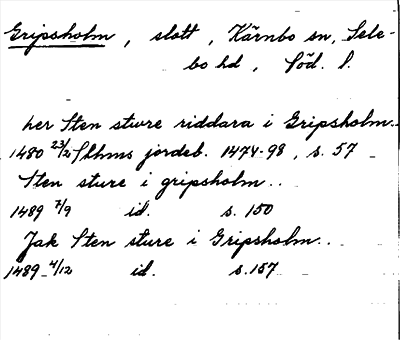 Gripsholm, slott, Kärnbo sn, Sele-
bo hd, Söd. l.
her Sten stwre riddara i Gripsholm..
1480 23/2 Sthms jordeb. 1474-98, s. 57
Sten sture i gripsholm..
1489 7/9 id. s. 150
Jak Sten sture i Gripsholm..
1489 4/12 id. s. 157